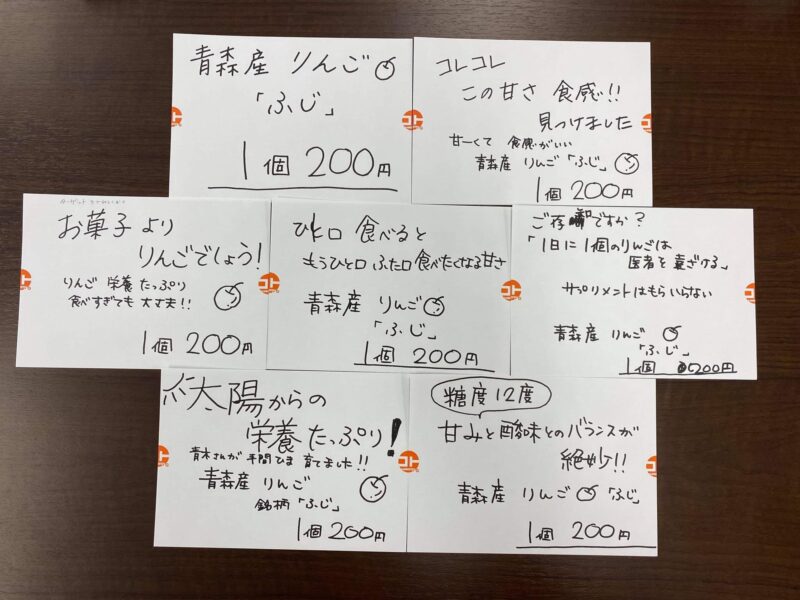 青森産 りんご
「ふじ」
1個 200円
コレコレ
この甘さ 食感!!
見つけました
甘ーくて 食感がいい
青森産 りんご「ふじ」
1個 200円
お菓子より
りんごでしょう!
りんご 栄養たっぷり
食べすぎても大丈夫!!
1個 200円
ひと口 食べると
もうひと口 ふた口 食べたくなる甘さ
青森産 りんご
「ふじ」
1個 200円
ご存知ですか?
「1日に1個のりんごは
医者を遠ざける」
サプリメントはもういらない
青森産 りんご
「ふじ」
1個 200円
太陽からの
栄養たっぷり!
青木さんが手間ひま育てました!!
青森産 りんご
銘柄「ふじ」
1個 200円
糖度12度
甘みと酸味とのバランスが
絶妙!!
青森産 りんご 「ふじ」
1個 200円
コト
コト
コト
コト
コト
コト
コト